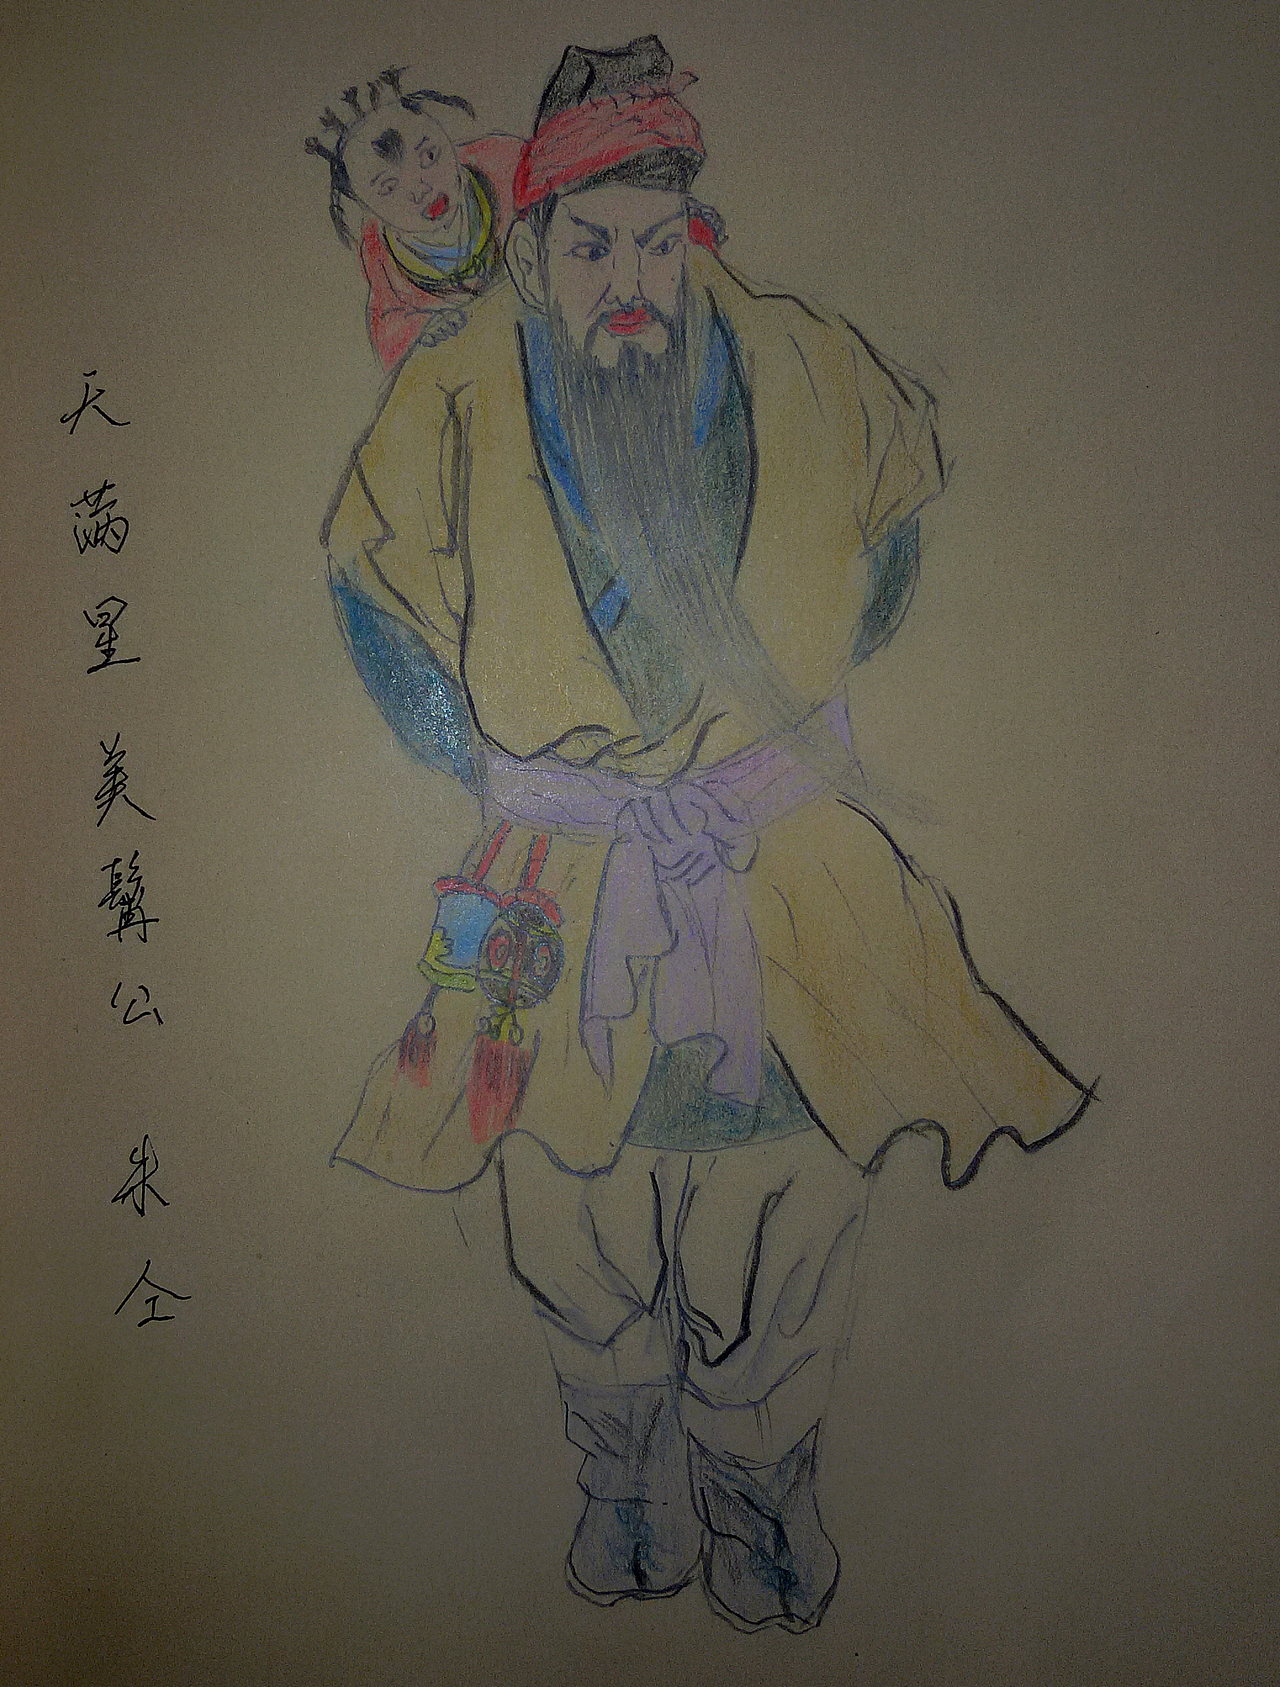 天满星美髯公 朱仝